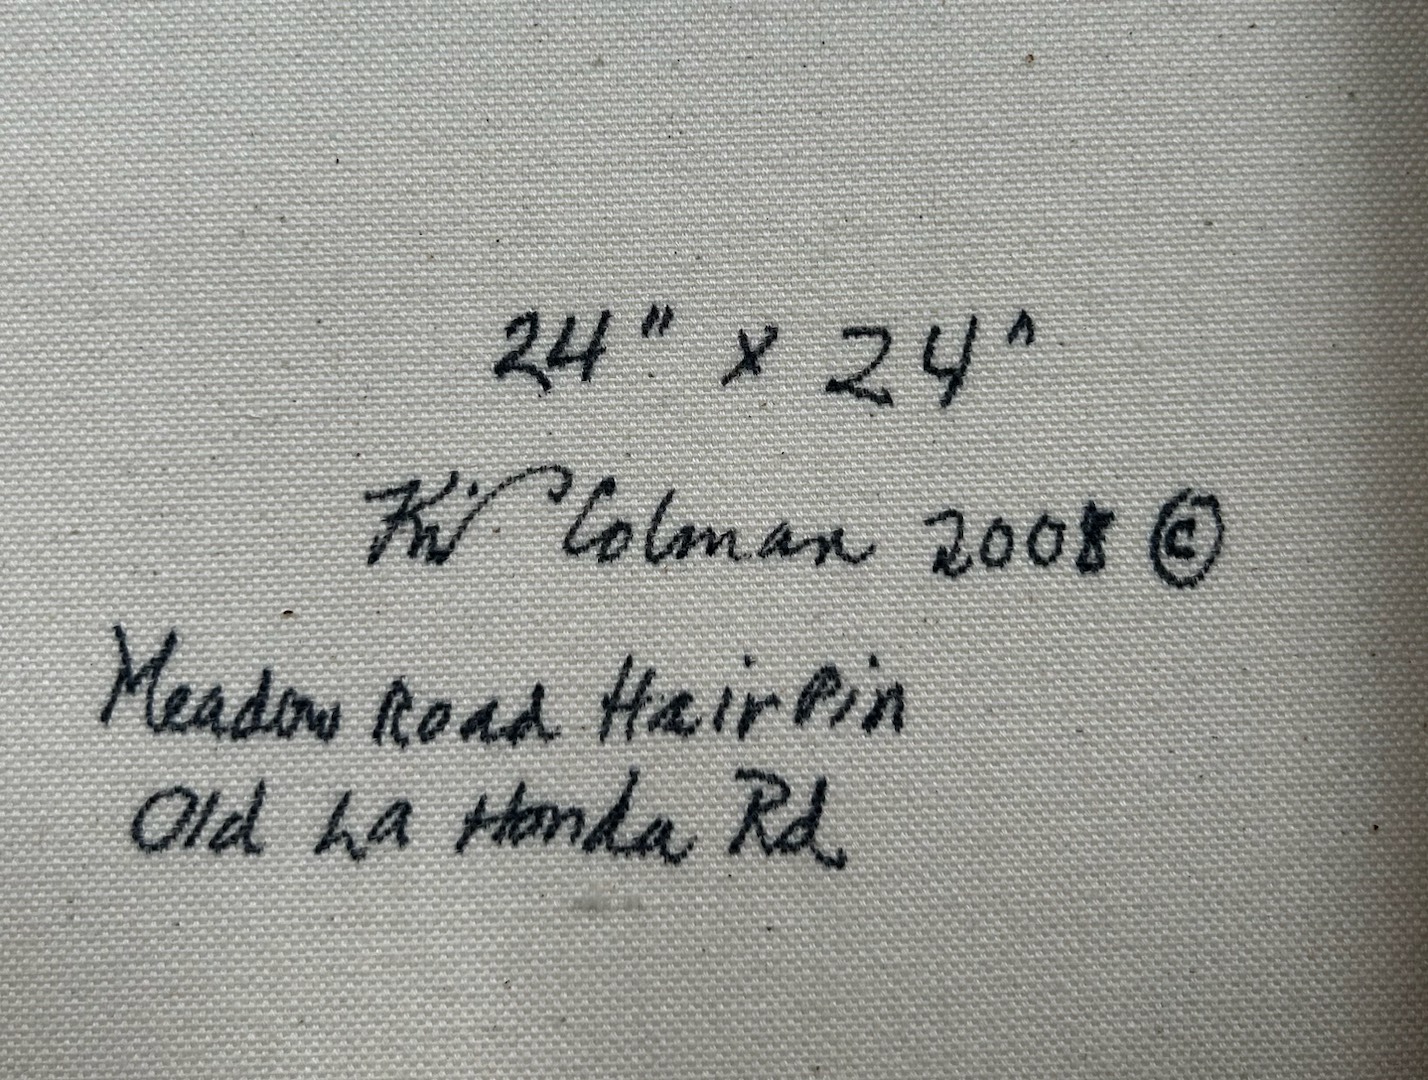 24" x 24"
Colman 2008 ©
Meadow Road HairPin
Old La Honda Rd.